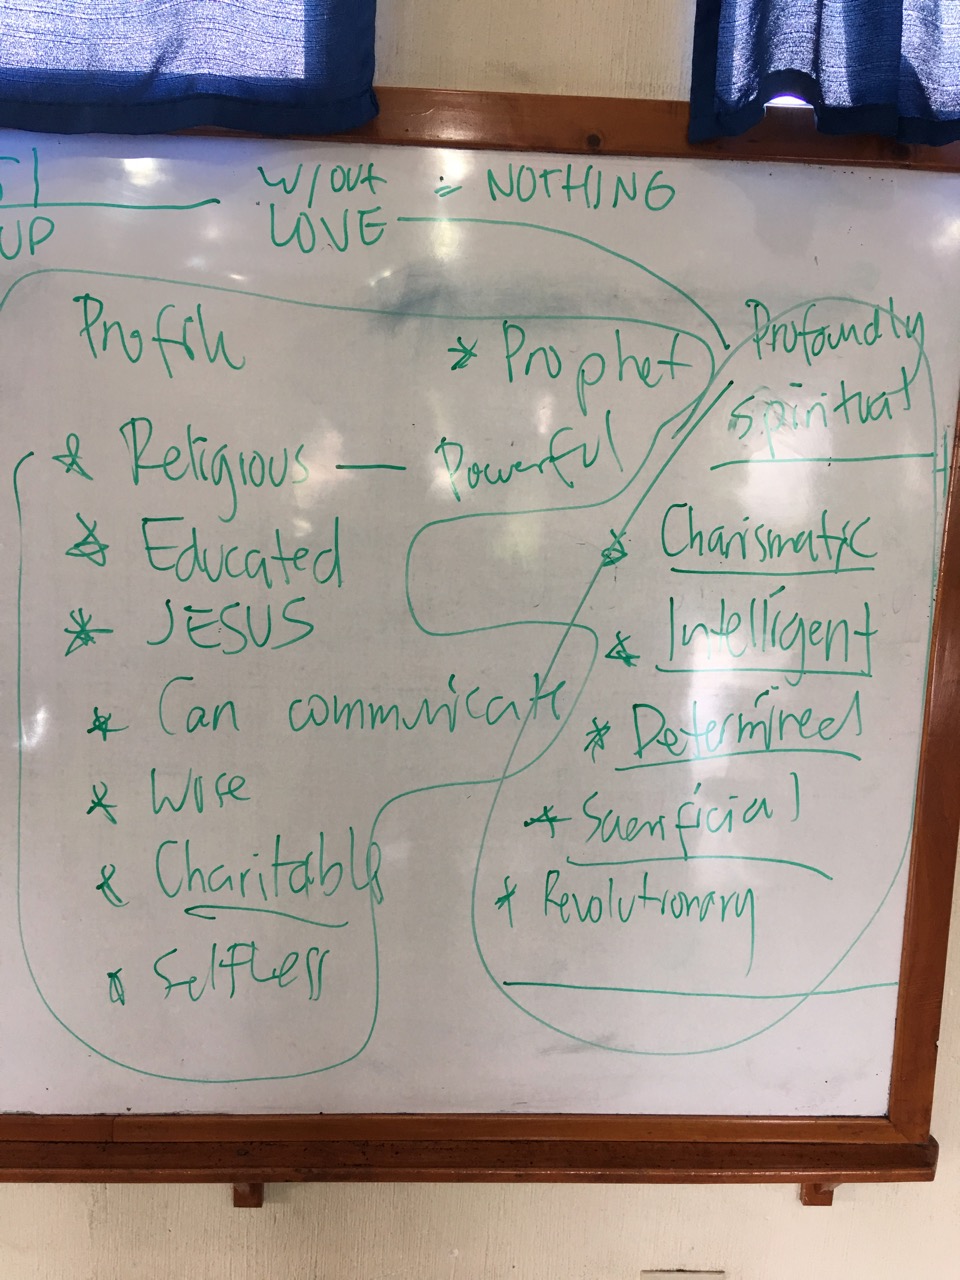 w/out = NOTHING
UP LOVE
Profile
* Prophet
* Religious — Powerful
* Educated
* JESUS
* Can communicate
* Wise
* Charitable
* Selfless
Profoundly
spiritual
* Charismatic
* Intelligent
* Determined
* Sacrificial
* Revolutionary